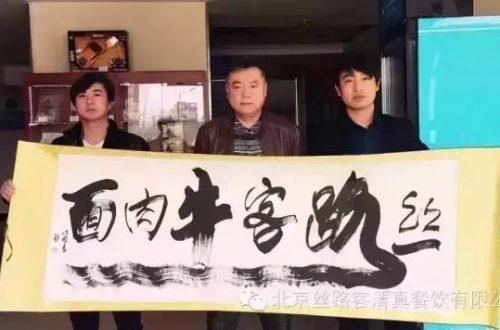 丝路客牛肉面
北京丝路客清真餐饮有限公